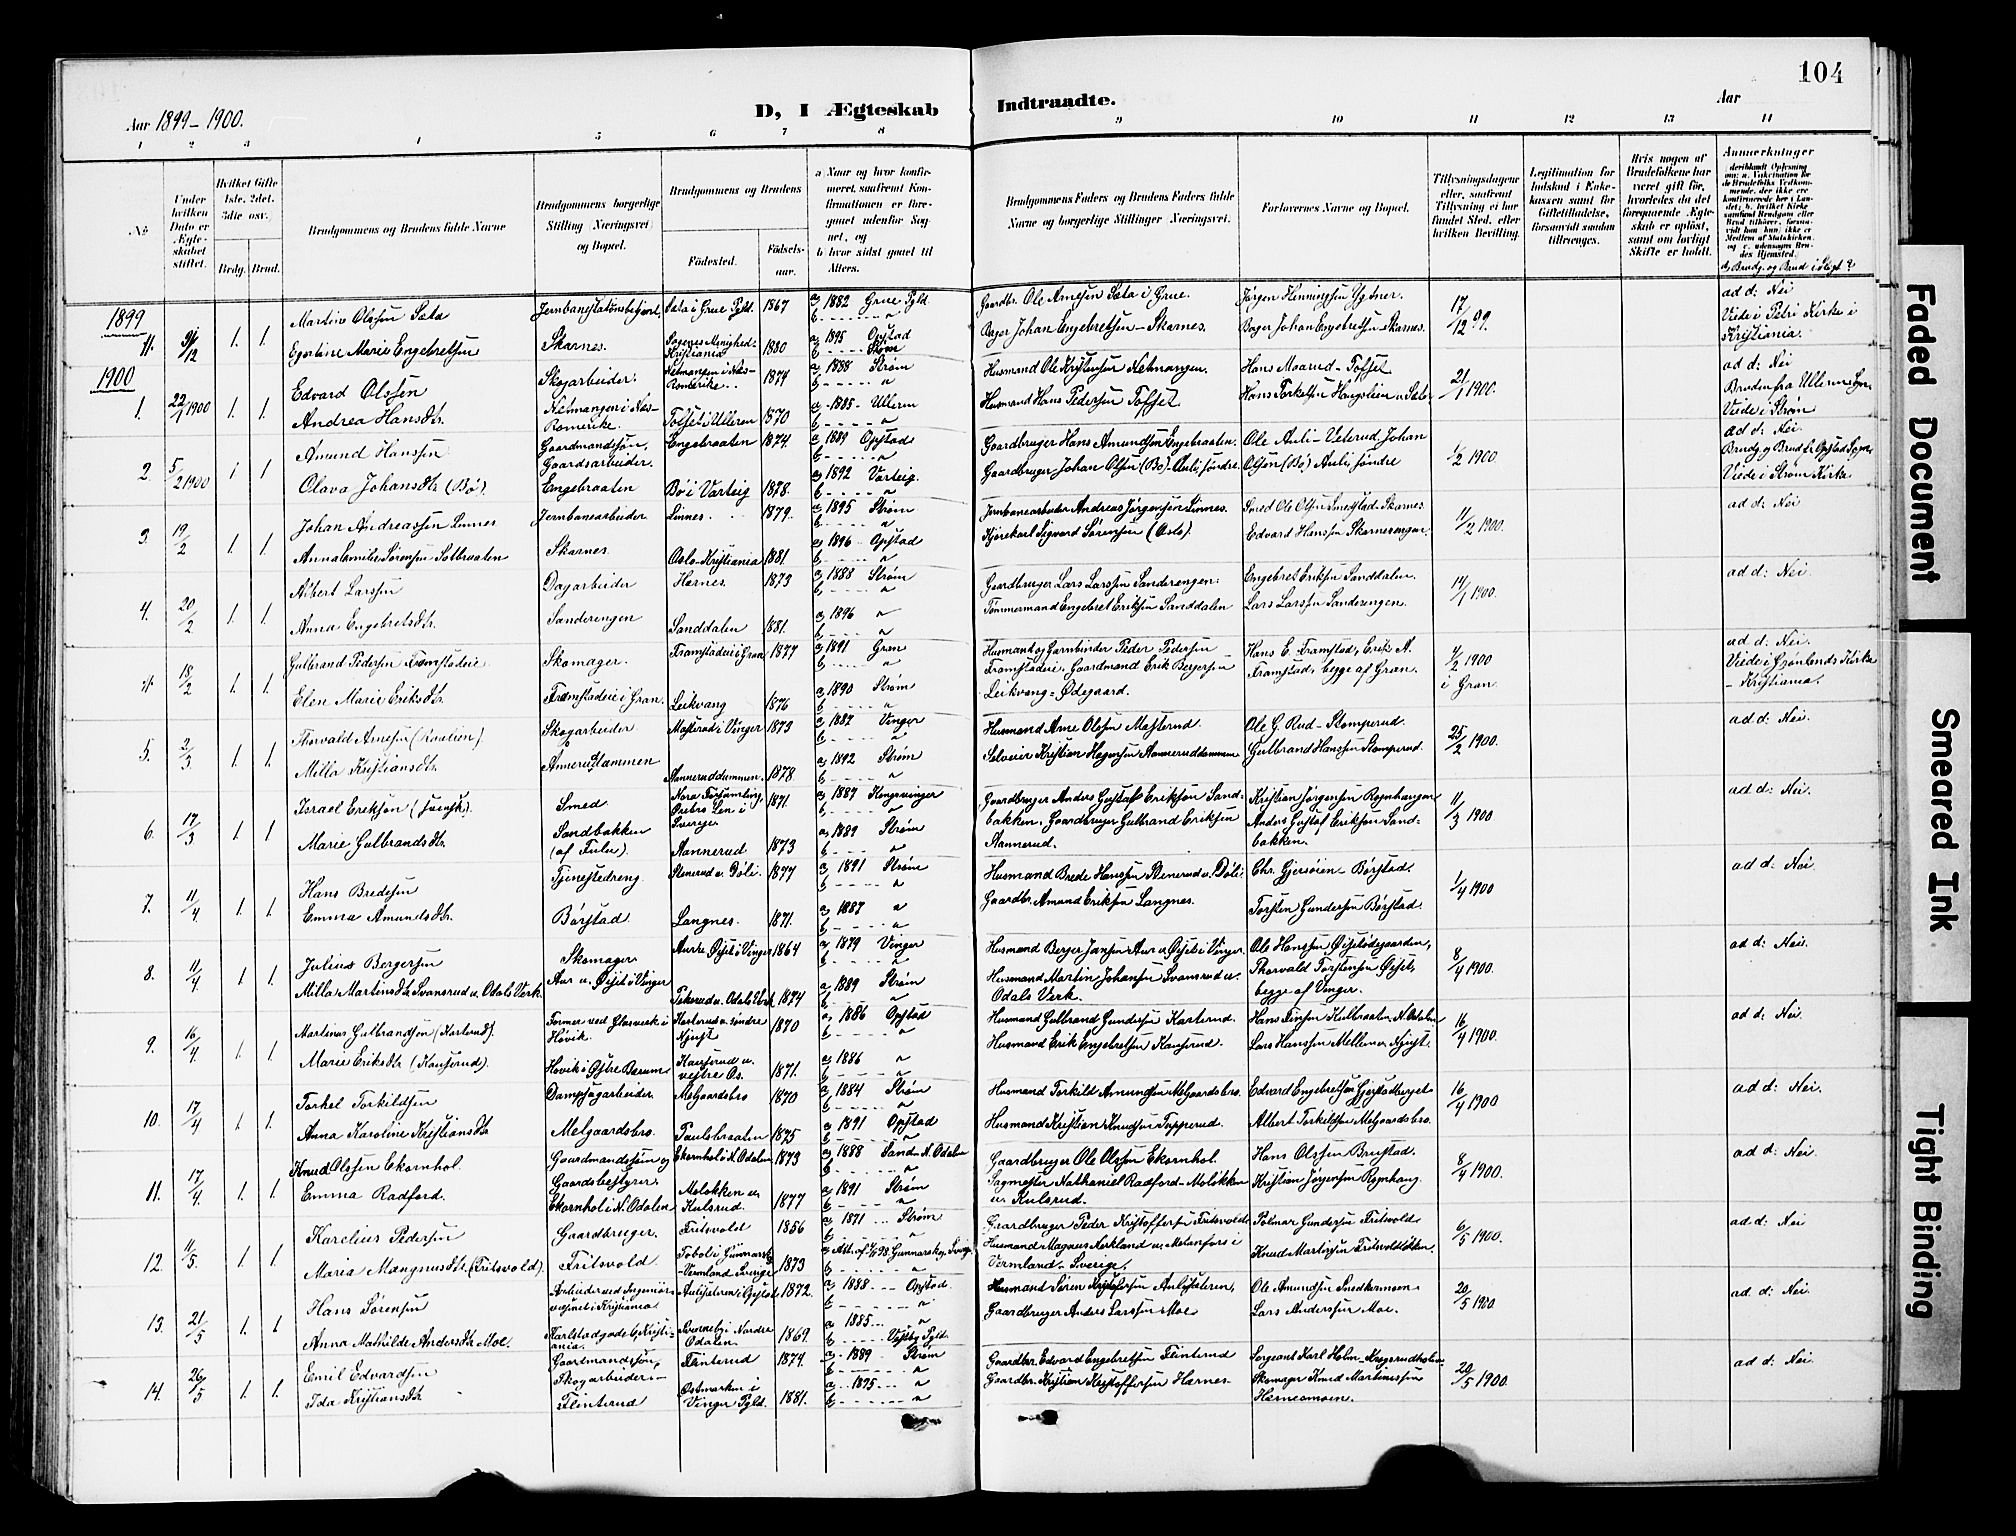 104
Aar 1899-1900.
D, I Ægteskab Indtraadte.
Aar
1 2 3 4 5 6 7 8 9 10 11 12 13 14
No
Under hvilken Dato er Ægteskabet stiftet.
Hvilket Gifte 1ste, 2det, 3die osv.
Brdg. Brud.
Brudgommens og Brudens fulde Navne
Brudgommens borgerlige Stilling (Næringsvei) og Bopæl.
Brudgommens og Brudens
Födested.
Födselsaar.
a Naar og hvor konfirmeret, saafremt Konfirmationen er foregaaet udenfor Sognet, og
b hvor sidst gaaet til Alters.
Brudgommens Faders og Brudens Faders fulde Navne og borgerlige Stillinger (Næringsvei).
Forlovernes Navne og Bopæl.
Tillysningsdagene eller, saafremt Tillysning ei har fundet Sted, efter hvilken Bevilling.
Legitimation for Indskud i Enkekassen samt for Giftetilladelse, forsaavidt saadan tiltrænges.
Hvis nogen af Brudefolkene har været gift før, hvorledes da det foregaaende Ægteskab er opløst, samt om lovligt Skifte er holdt.
Anmerkninger
d, Brudg. og Brud i Slegt?
1899
11. 31/12 1. 1. Martine Olssen Sæta
Egertine Marie Engebretsen
Jernbanestationsbetjent. Skarnes.
Sæta i Grue Pgld. 1867
Kristiania 1880
a, 1882 Grue Pgld.
a, 1895 Opstad
b, Strøm
Gaardbr. Ole Arnesen Sæta i Grue.
Bager Johan Engebretsen - Skarnes.
Jørgen Henningsen Ygdner.
Bager Johan Engebretsen - Skarnes.
17/12 99.
ad d: Nei
Viede i Petri Kirke i Kristiania.
1900
1. 22/1 1900 1. 1. Edvard Olssen
Andrea Hansdtr.
Skogarbeider.
Netmangen i Næs-Romerike.
Netmangen i Næs-Romerike 1874
Tofset i Ullern 1870
a, 1888 Strøm
a, 1885 - Ullern
Husmand Ole Kristensen Netmangen.
Husmand Hans Pedersen Tofset.
Hans Maarud - Tofset
21/1 1900.
ad d: Nei
Bruden fra Ullern Sogn.
Viede i Strøm
2. 5/2 1900 1 1 Amund Hanssen
Olava Johansdtr (Bø).
Gaardmandssøn, Gaardsarbeider.
Engebraaten
Engebraaten 1874.
Bø i Varteig 1878.
a, 1889 Opstad
a, 1892 Varteig.
Gaardbruger Hans Amundsen Engebraaten.
Gaardbruger Johan Olsen (Bø) - Auli, søndre
Ole Auli - Veterud, Johan Olsen (Bø) Auli, søndre
2 1900
ad d: Nei.
Brudg og Brud fr. Opstad Sogn
Viede i Strøm Kirke
3. 19/2 1. 1. Johan Andreassen Linnes
Anna Emilie Sørensen Solbraaten
Jernbanearbeider
Skarnes.
Linnes 1879.
Oslo - Kristiania 1881.
a, 1895 Strøm
a, 1896 Opstad
Jernbanearbeider Andreas Jørgensen Linnes.
Kjørekarl Sigvard Sørensen (Oslo).
Smed Ole Olsen Smedstad - Skarnes.
Edvard Hanssen Skarnesengen.
11/2 1900.
ad d: Nei
4. 20/2 1. 1. Albert Larssen
Anna Engebretsdtr.
Dagarbeider
Sanderengen
Harnes. 1873
Sanddalen 1881.
a, 1888 Strøm
a, 1896
Gaardbruger Lars Larssen Sanderengen.
Tømmermand Engebret Eriksen Sanddalen
Engebret Eriksen Sanddalen.
Lars Larssen Sanderengen.
14/1 1900.
ad d: Nei
18/2 1. 1. Gulbrand Pedersen Framstadeie
Elen Marie Eriksdtr.
Skomager.
Framstadeie i Gran.
Framstadeie i Gran 1877
Leikvang 1876
a, 1891 Gran
a, 1890 Strøm
Husmand og Garnbinder Peder Pedersen Framstadeie. Gaardmand Erik Bergersen Leikvang - Ødegaard.
Hans E. Framstad, Erik A. Framstad, begge af Gran.
4/2 1900 i Gran
ad d: Nei.
Viede i Grønlands Kirke - Kristiania.
5. 2/3 1. 1. Thorvald Arnesen (Raalien).
Milla Kristiansdtr.
Skogarbeider
Annerudammen
Masterud i Vinger 1873
Aanneruddammen. 1878.
a, 1887 Vinger
a, 1892 Strøm
Husmand Arne Olssen Masterud.
Selveier Kristian Hagensen Aanneruddammen
Ole G. Rud - Stomperud.
Gulbrand Hanssen Stomperud.
25/2 1900.
ad d: Nei.
6. 17/3 1. 1. Israel Eriksøn (svensk).
Marie Gulbrandsdtr.
Smed
Sandbakken
Nora Forsamling, Örebro Len i Sverige 1871.
Aannerud 1873
a, 1887 Kongsvinger
a, 1889 Strøm
Gaardbruger Anders Gustaf Eriksøn Sandbakken. Gaardbruger Gulbrand Eriksen Aannerud.
Kristian Jørgensen Rognhaugen
Anders Gustaf Eriksøn Sandbakken.
11/3 1900
ad d: Nei.
7. 11/4 1. 1. Hans Bredesen
Emma Amundsdtr.
Tjenestedreng
Børstad
Stenerud u. Döli. 1877
Langnes. 1871.
a, 1891 Strøm
a, 1887
Husmand Brede Hanssen Stenerud u. Döli.
Gaardbr. Amund Eriksen Langnes.
Chr. Gjersøien Børstad.
Torsten Gundersen Børstad.
1/4 1900
ad d: Nei.
8. 11/4 1. 1. Julius Bergersen
Milla Martinsdtr Svansrud u. Odals Verk.
Skomager
Aur u. Øiset i Vinger
Aur u. Øiset i Vinger 1864
Odals Verk 1874
a, 1879 Vinger
a, 1889 Strøm
Husmand Berger Jansen Aur u. Øiset i Vinger.
Husmand Martin Johansen Svansrud u. Odals Verk.
Ole Hanssen Øisetødegaarden,
Thorvald Torstensen Øiset, begge af Vinger.
8/4 1900.
ad d: Nei.
9. 16/4 1. 1. Martinus Gulbrandsøn (Karterud).
Marie Eriksdtr (Kauserud).
Former ved Glasverk i Høvik.
Høvik i Østre Bærum
Karterud u. søndre 1870
Kauserud u. vestre Os. 1871.
a, 1886 Opstad
a, 1886
Husmand Gulbrand Gundersen Karterud.
Husmand Erik Engebretsen Kauserud.
16/4 1900.
ad d: Nei
10. 17/4 1. 1. Torkel Torkildsen
Anna Karoline Kristiansdtr
Dampsagarbeider
Melgaardsbro.
Melgaardsbro 1870
Paulsbraaten 1875
a, 1884 Strøm
a, 1891 Opstad
Husmand Torkild Amundsen Melgaardsbro.
Husmand Kristian Knudsen Topperud.
Albert Torkildsen Melgaardsbro.
16/4 1900
ad d: Nei.
11. 17/4 1. 1. Knud Olssen Ekornhol.
Emma Radford.
Gaardmandssøn og Gaardsbestyrer.
Ekornhol i N. Odalen
Ekornhol i N. Odalen 1873
Moløkken u. Kulsrud. 1877
a, 1888 Sand N. Odalen
a, 1891 Strøm
Gaardbruger Ole Olssen Ekornhol.
Sagmester Nathaniel Radford - Moløkken u. Kulsrud.
Hans Olssen Brustad.
Kristian Jørgensen Rognhaug.
8/4 1900.
ad d: Nei.
12. 11/5 1. 1. Karelius Pedersen
Maria Mangnusdtr (Fritsvold).
Gaardbruger.
Fritsvold
Fritsvold 1856
Vermland Sverige 1873
a, 1871 Strøm
Gaardbruger Peder Kristoffersen Fritsvold
Vermland - Sverige.
Polmar Gundersen Fritsvold
Knud Martinsen Fritsvoldløkken.
6/5 1900.
ad d: Nei
13. 21/5 1. 1. Hans Sørensen
Anna Mathilde Andersdtr Moe.
Aulisæteren i Opstad 1872.
Nordre Odalen 1869.
a, 1888 Opstad
a, 1885
b, Vestby Pgld.
Husmand Søren Kristofersen Aulisæteren,
Gaardbruger Anders Larssen Moe
Ole Amundsen Smedkermoen
Lars Anderssen Moe.
20/5 1900
ad d: Nei.
14. 26/5 1. 1. Emil Edvardsen
Ida Kristiansdtr
Gaardmandssøn, Skogarbeider
Flinterud
Flinterud 1874.
Østmarken i Vinger Pgld. 1881.
a, 1889 Strøm
a, 1895
Gaardbr. Edvard Engebretsen Flinterud
Gaardbr. Kristian Kristoffersen Harnes
Sergeant Karl Holm - Kragsrudholm
Skomager Knud Martinussen Harnesmoen.
20/5 1900.
ad d: Nei
Faded Document
Smeared Ink
Tight Binding